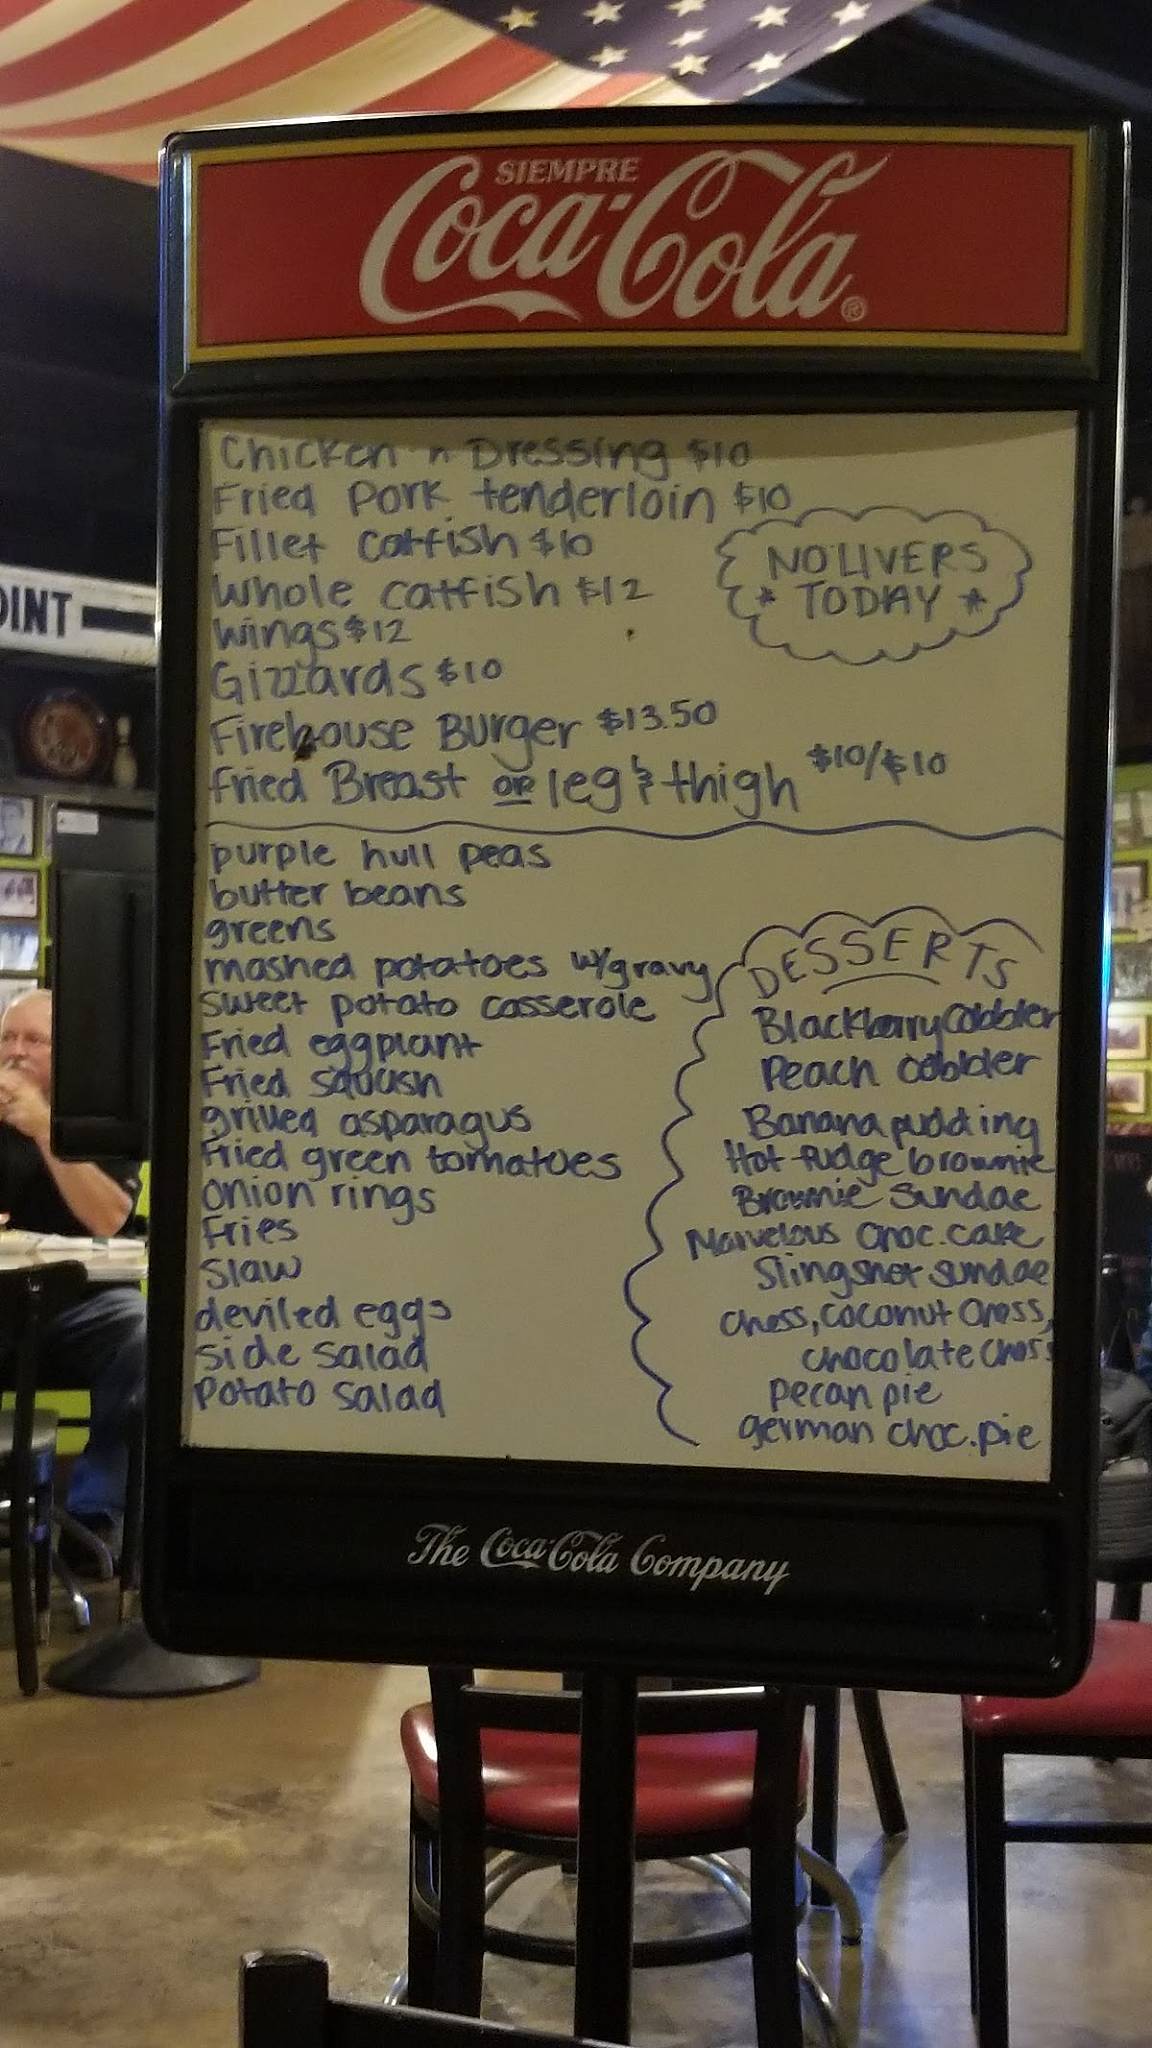 SIEMPRE
Coca-Cola®
Chicken n Dressing $10
Fried Pork tenderloin $10
Fillet catfish $10
Whole catfish $12
Wings $12
Gizzards $10
Firehouse Burger $13.50
Fried Breast OR leg & thigh $10/$10
NO LIVERS
* TODAY *
purple hull peas
butter beans
greens
mashed potatoes w/gravy
sweet potato casserole
Fried eggplant
Fried squash
grilled asparagus
Fried green tomatoes
onion rings
Fries
slaw
deviled eggs
side salad
potato salad
DESSERTS
Blackberry Cobbler
Peach cobbler
Banana pudding
Hot fudge brownie
Brownie Sundae
Marvelous choc. cake
Slingshot sundae
Chess, coconut chess,
chocolate chess
pecan pie
german choc. pie
The Coca-Cola Company
OINT